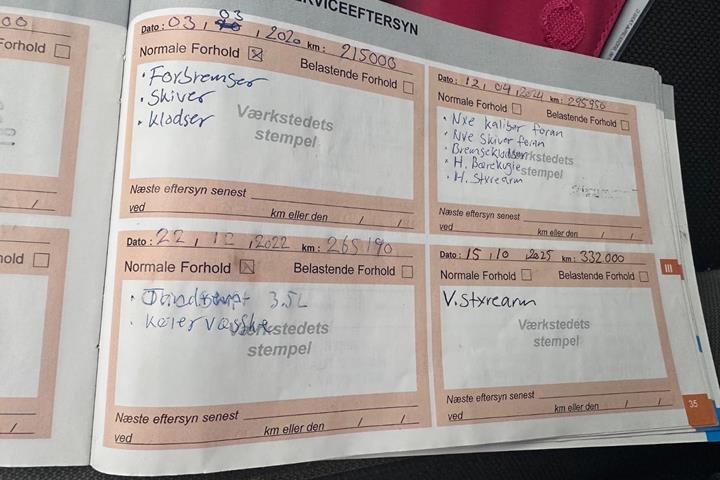 00
Forhold
hold
ERVICEEFTERSYN
03
Dato: 03, , 2020 km: 215000
Normale Forhold
Belastende Forhold
• Forbremser
• Skiver
• klodser
Værkstedets
stempel
Næste eftersyn senest
ved km eller den / /
Dato: 12, 04, 2024 km: 295950
Normale Forhold
Belastende Forhold
• Nye kaliber foran
• Nye Skiver foran
• Bremseklodser
• H. Bærekugle
• H. Styrearm
Værkstedets
stempel
Næste eftersyn senest
ved km eller den / /
Dato: 22, 12, 2022 km: 265190
Normale Forhold
Belastende Forhold
• 3.5L
• Kølervæske
Værkstedets
stempel
Næste eftersyn senest
ved km eller den / /
Dato: 15, 10, 2025 km: 332.000
Normale Forhold
Belastende Forhold
V. styrearm
Værkstedets
stempel
Næste eftersyn senest
ved km eller den / /
III
35